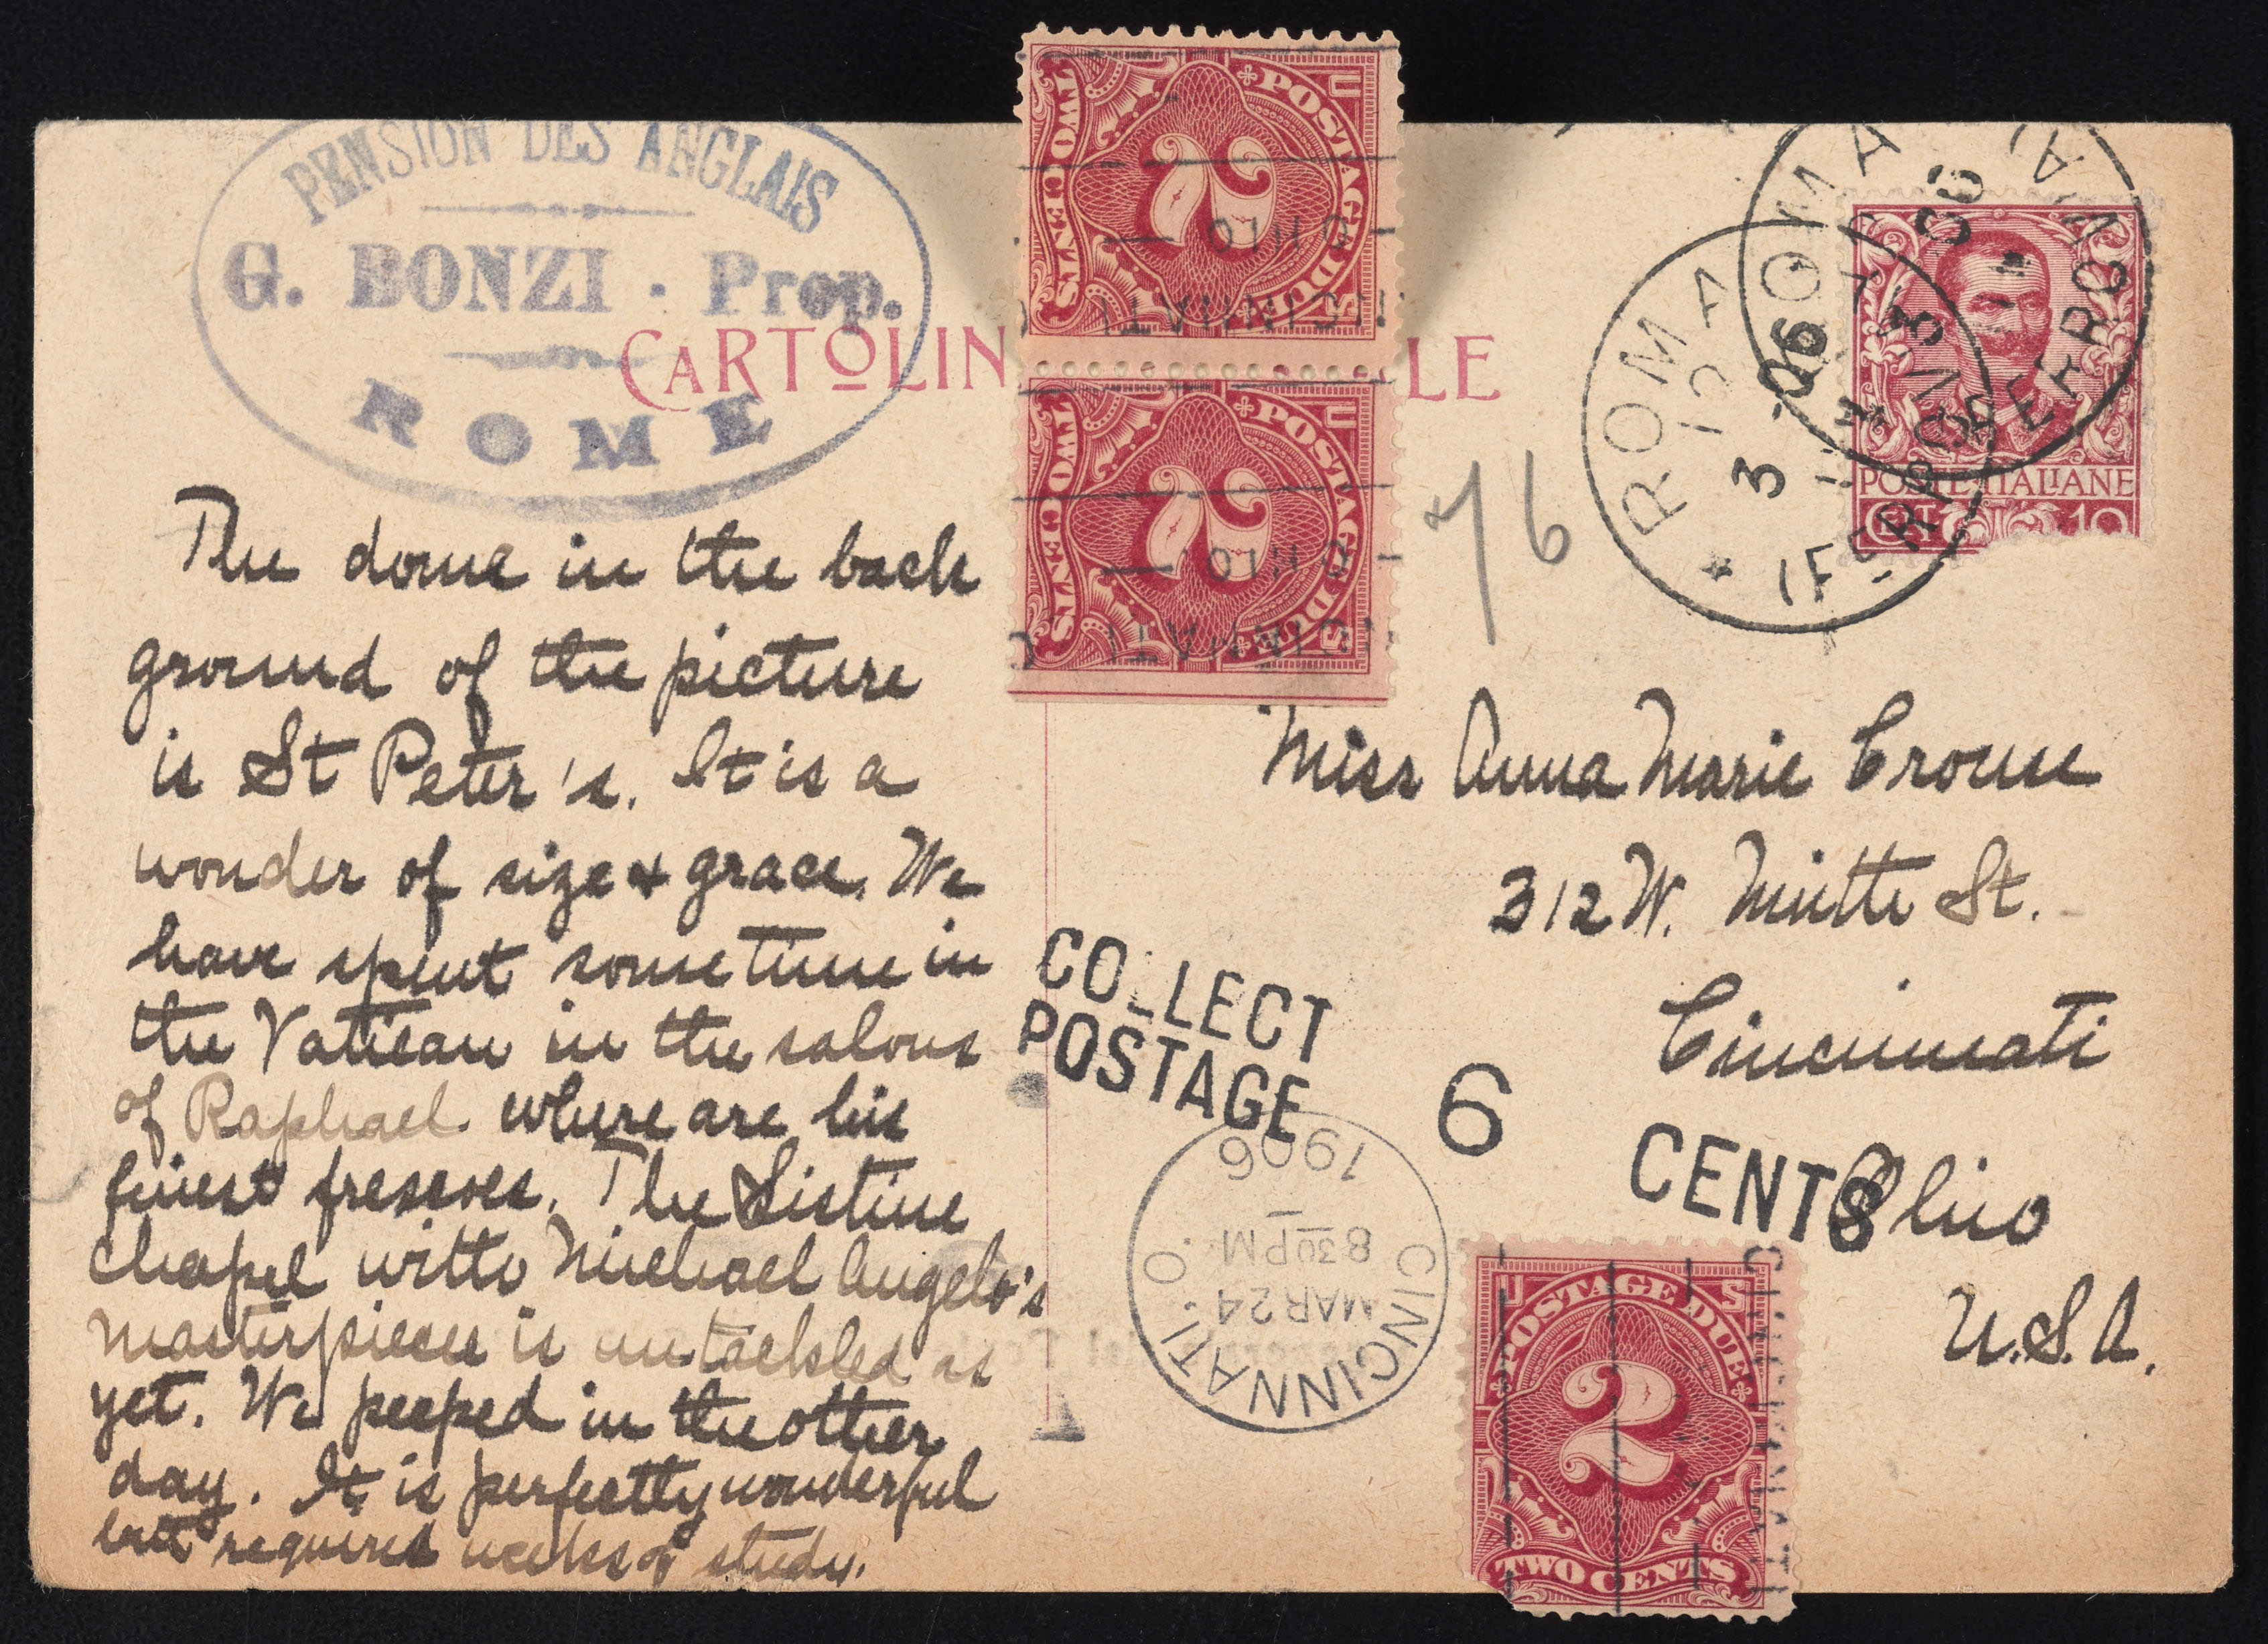 PENSION DES ANGLAIS
G. BONZI · Prop.
ROME
CARTOLIN LE
The dome in the back
ground of the picture
is St Peter's. It is a
wonder of size + grace. We
have spent some time in
the Vatican in the salons
of Raphael where are his
finest frescoes. The Sistine
Chapel with Michael Angelo's
masterpieces is untackled as
yet. We peeped in the other
day. It is perfectly wonderful
but requires weeks of study.
U S
POSTAGE DUE
2
TWO CENTS
CINCINNATI
OHIO
U S
POSTAGE DUE
2
TWO CENTS
CINCINNATI
OHIO
76
ROMA
12
3 - 06
FERROVIA
ROMA
3 06
FERROVIA
POSTE ITALIANE
CT. 10
Miss Anna Marie Crouse
312 W. St.
Cincinnati
Ohio
U.S.A.
COLLECT
POSTAGE
6
CENTS
T
CINCINNATI, O.
MAR 24
8 30 PM
1906
U S
POSTAGE DUE
2
TWO CENTS
CINCINNATI